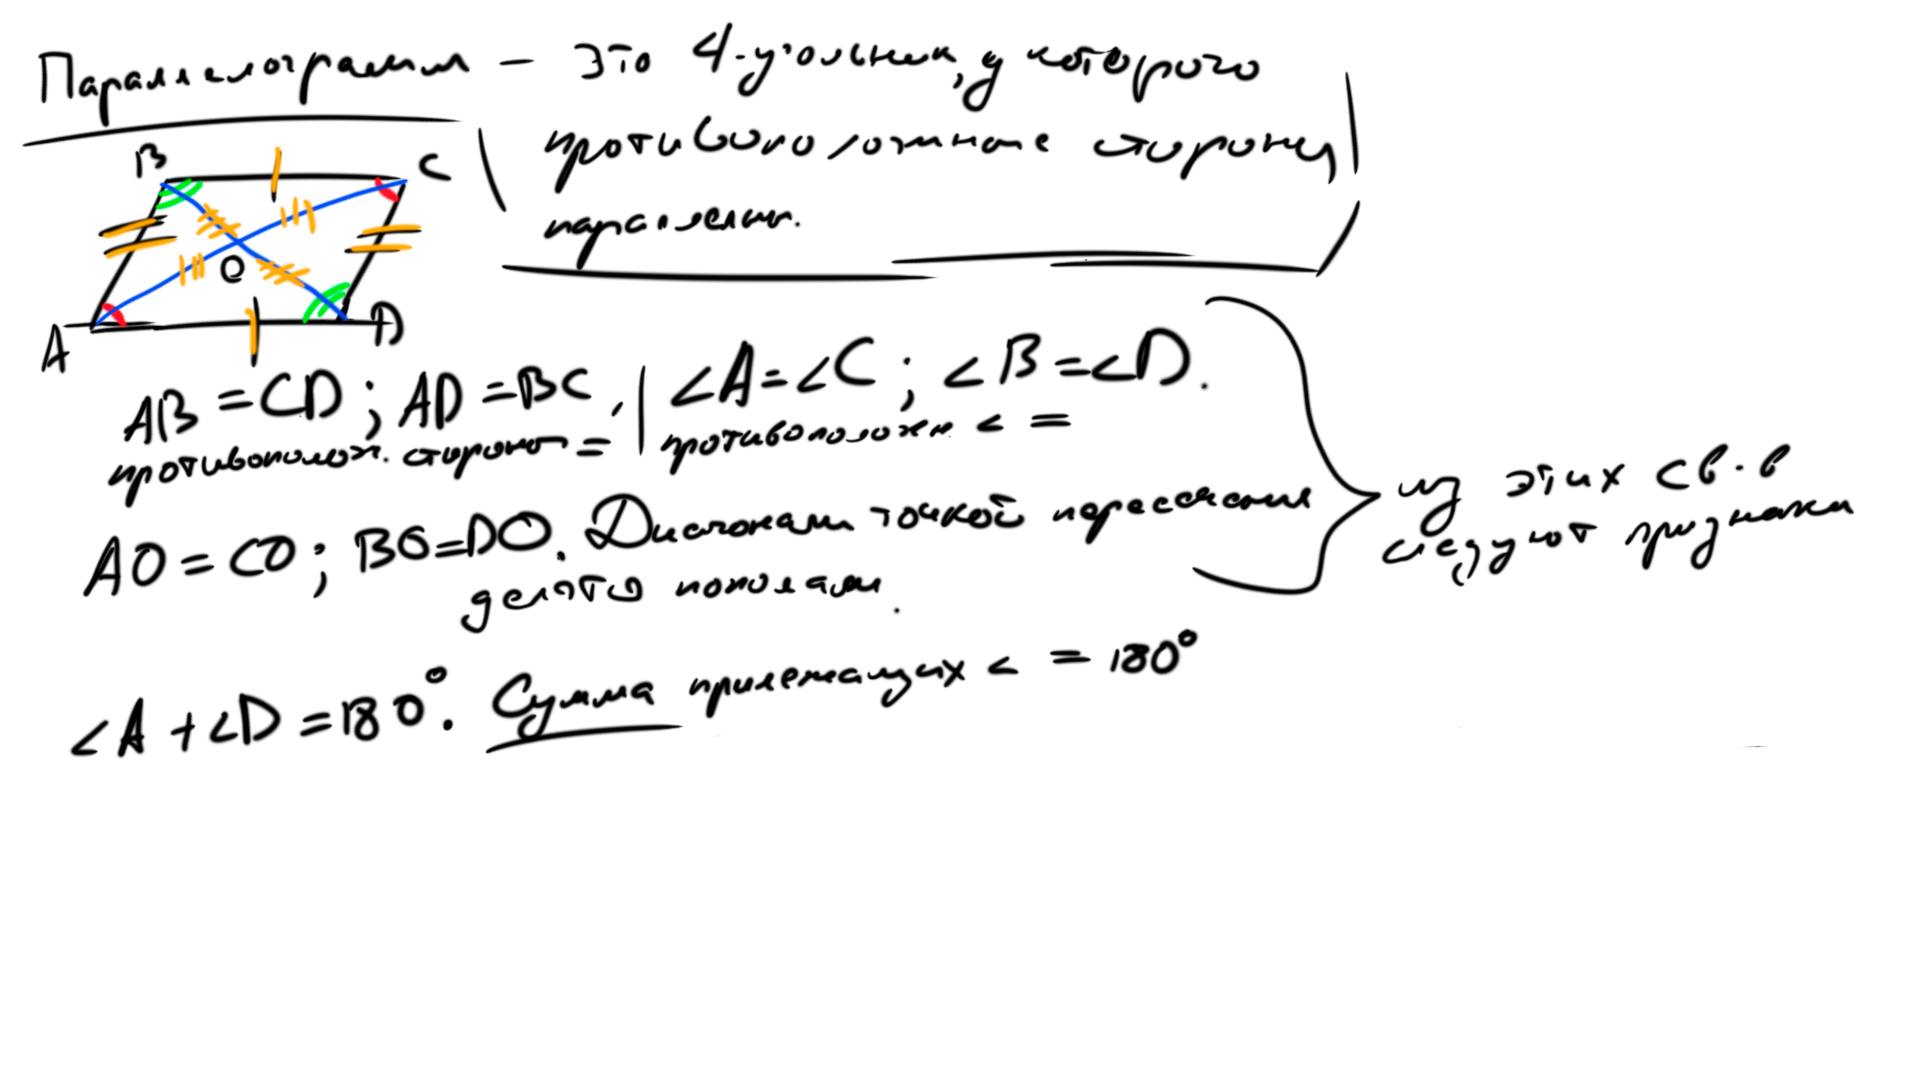 Параллелограмм - это 4-угольник, у которого
противоположные стороны
параллельн.
B
C
O
A
D
AB = CD; AD = BC. | ∠A = ∠C; ∠B = ∠D.
противополож. стороны = | противоположн ∠ =
AO = CO; BO = DO. Диагонали точкой пересечения
делятся пополам.
из этих св-в
следуют признаки
∠A + ∠D = 180°. Сумма прилежащих ∠ = 180°